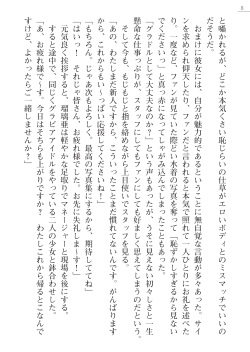 と囁かれるが、どこか本気くさい恥じらいの仕草がエロいボディとのミスマッチでいいの
だそうだ。
おまけに彼女には、自分が魅力的であるということに無自覚な言動が多々あった。サイ
ンを求められ仰天したり、ファンだと言われると本気で照れて一人ひとりにお礼を述べた
り。一度など、ファンが見ていた際どい水着の写真を奪って「恥ずかしすぎるから見ない
でくださいっ」と真っ赤になってしゃがみ込んでしまったこともあった。
「グラドルとして大丈夫なのか？」という声もあったが、うそに見えない初々しさと一生
懸命な仕事っぷりが、スタッフにしてもファンにしても好ましく思えてしまうのだという。
そして今も、もじもじと指を絡めながら上目使いでスタッフを見る。
「あ、あの……本当に私でいいのなら、こんなに嬉しいことないんです。がんばります
から、これからもいっぱい応援してくださいね」
「もちろん。じゃあ次もよろしく。最高の写真集にするから、期待しててね」
「はいっ！　それじゃ皆さん、お疲れ様でした。お先に失礼しまーす！」
元気良く挨拶すると、瑠璃亜は軽やかな足取りでマネージャーと現場を後にする。
すると途中で、同じくグラビアアイドルをやっている二人の少女と鉢合わせした。
「あ、お疲れ様です。今日はそちらも上がりですか？　わたしこれから帰るとこなんで
すけど、よかったら一緒しませんか？」
8